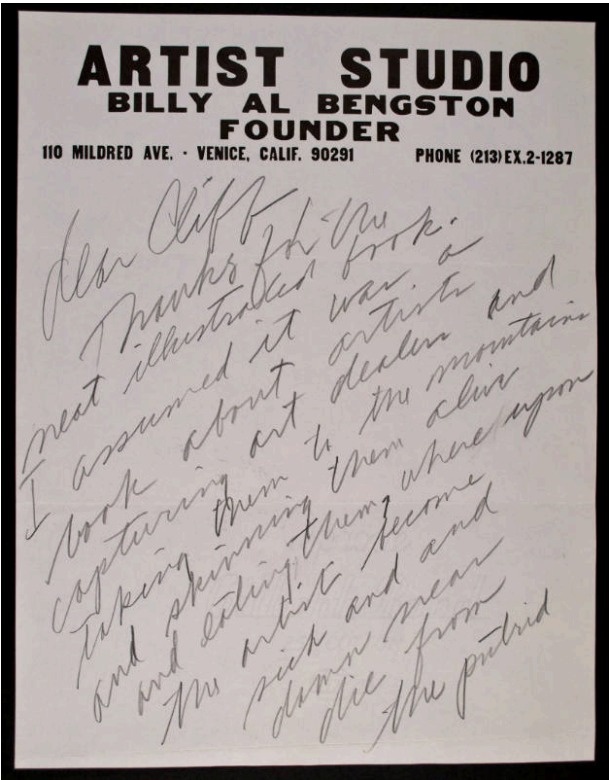 ARTIST STUDIO
BILLY AL BENGSTON
FOUNDER
110 MILDRED AVE. · VENICE, CALIF. 90291 PHONE (213) EX.2-1287
Dear Cliff
Thanks for the
neat illustrated book.
I assumed it was a
book about artists
capturing art dealers and
taking them to the mountains
and skinning them alive
and eating them, whereupon
the artist become
sick and and
damn near
die from
the putrid